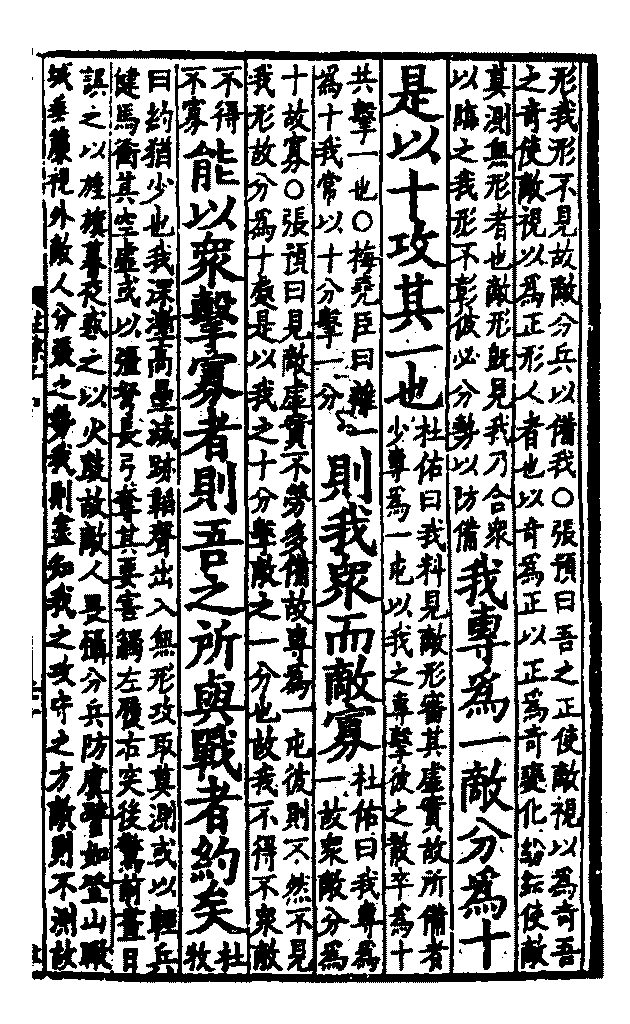 形我形不見故敵分兵以備我○張預曰吾之正使敵視以爲奇吾
之奇使敵視以爲正形人者也以奇爲正以正爲奇變化紛紜使敵
莫測無形者也敵形既見我乃合衆
以臨之我形不彰彼必分勢以防備
我專爲一敵分爲十
是以十攻其一也
杜佑曰我料見敵形審其虛實故所備者
少專爲一屯以我之專擊彼之散卒爲十
共擊一也○梅堯臣曰離一
爲十我常以十分擊一分
則我衆而敵寡
杜佑曰我專爲
一故衆敵分爲
十故寡○張預曰見敵虛實不勞多備故專爲一屯彼則不然不見
我形故分爲十處是以我之十分擊敵之一分也故我不得不衆敵
不得
不寡
能以衆擊寡者則吾之所與戰者約矣
杜
牧
曰約猶少也我深塹高壘滅跡韜聲出入無形攻取莫測或以輕兵
健馬衝其空虛或以彊弩長弓奪其要害觸左履右突後驚前晝日
誤之以旌旗暮夜惑之以火鼓故敵人畏懾分兵防虞譬如登山瞰
城垂簾視外敵人分張之勢我則盡知我之攻守之方敵則不測故